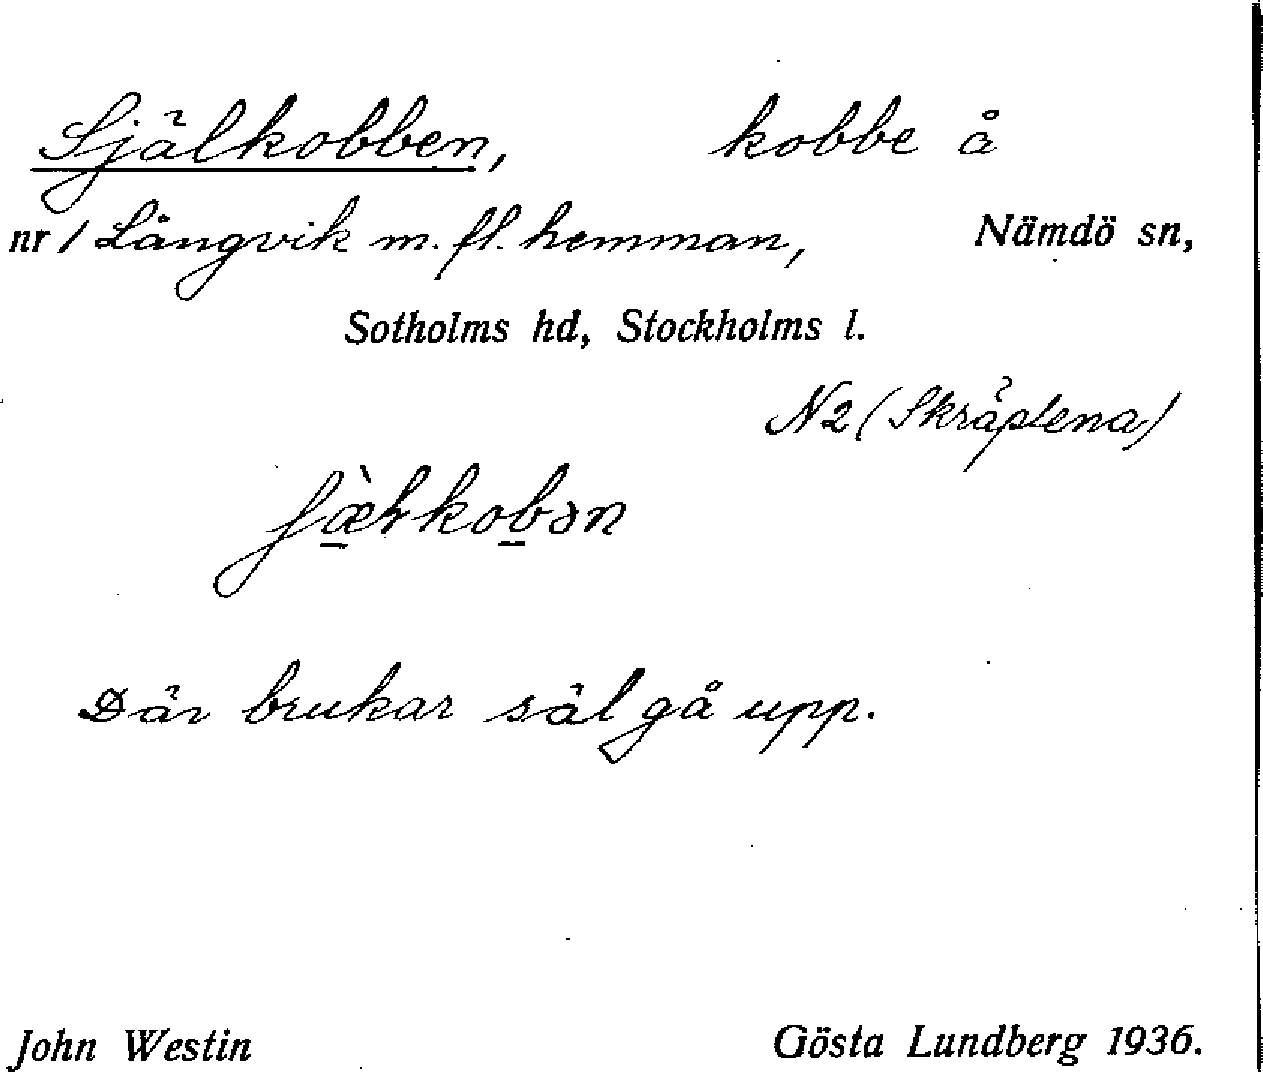 Själkobben, kobbe å
nr 1 Långvik m. fl. hemman, Nämdö sn,
Sotholms hd, Stockholms l.
N2 (Skräplena)
Där brukar säl gå upp.
John Westin Gösta Lundberg 1936.